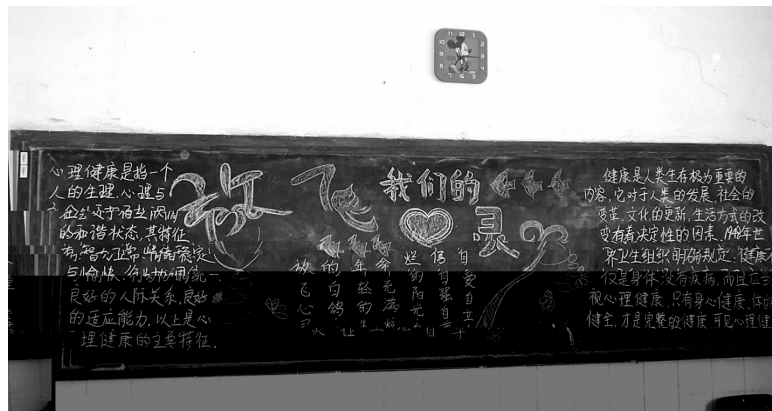 心理健康是指一个
人的生理、心理与
社会处于相互协调
的和谐状态,其特征
为智力正常,情绪稳定
与愉快,行为协调统一,
良好的人际关系,良好
的适应能力。以上是心
理健康的主要特征。
放飞
我们的
心灵
自爱自立
自信自强自
灿烂的阳光
命充满
年轻的生
的白鸽
放飞心灵
健康是人类生存极为重要的
内容,它对于人类的发展,社会的
变革,文化的更新,生活方式的改
变有着决定性的因素。1948年世
界卫生组织明确规定:健康不
仅是身体没有疾病,而且应当
视心理健康,只有身心健康、体
健全,才是完整的健康。可见心理健